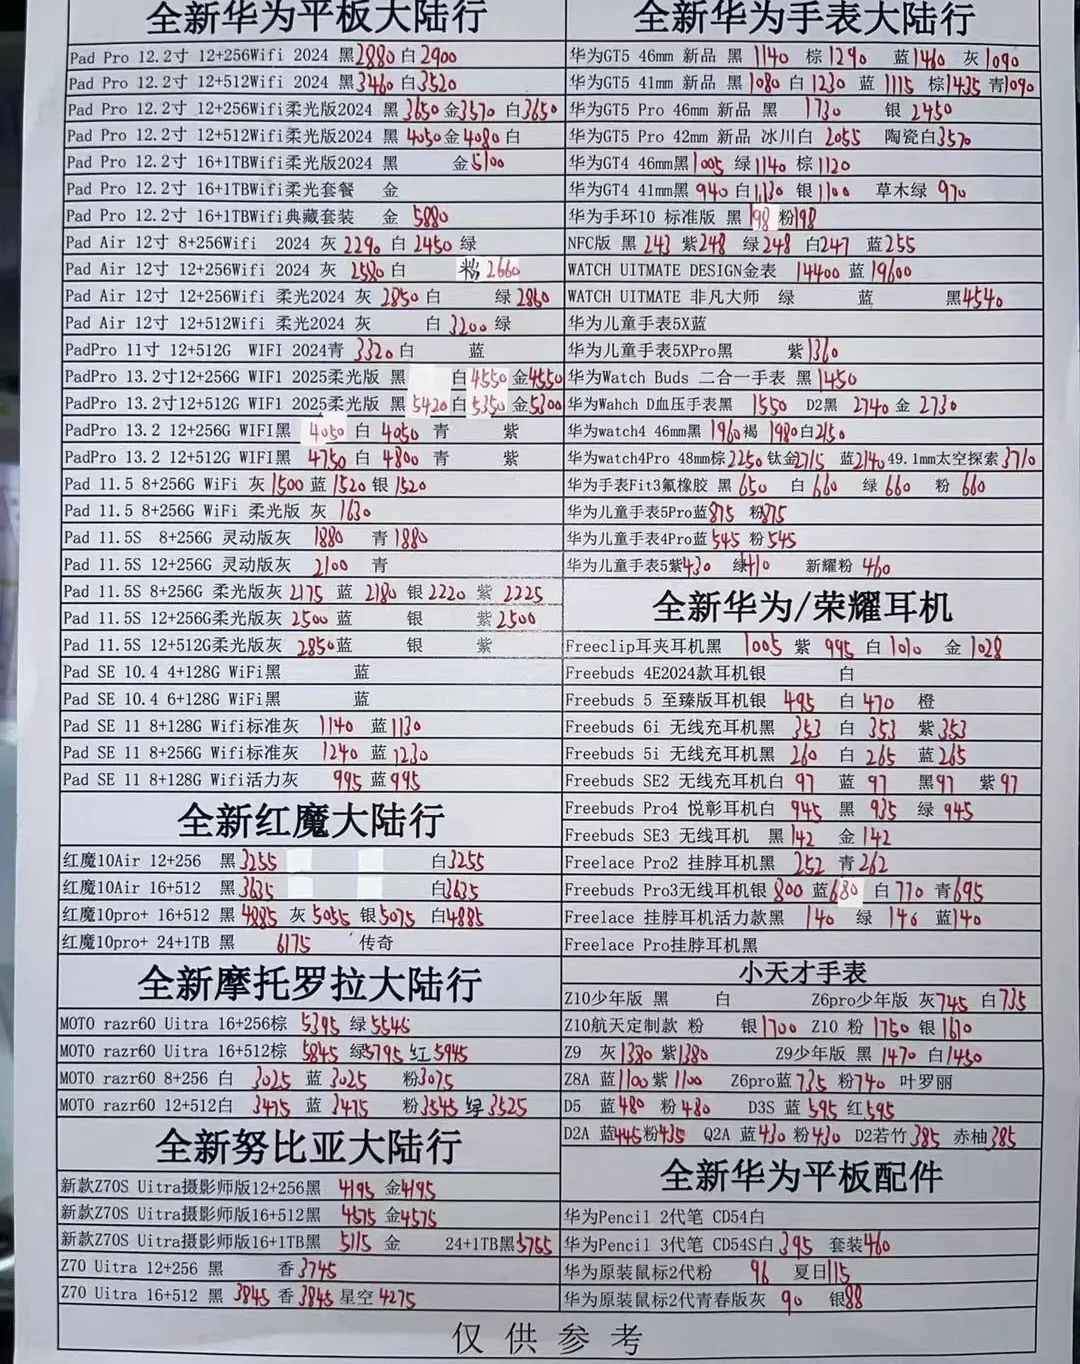 全新华为平板大陆行
Pad Pro 12.2寸 12+256Wifi 2024 黑2880 白2900
Pad Pro 12.2寸 12+512Wifi 2024 黑3460 白3520
Pad Pro 12.2寸 12+256Wifi柔光版2024 黑3650 金3570 白3650
Pad Pro 12.2寸 12+512Wifi柔光版2024 黑4050 金4080 白
Pad Pro 12.2寸 16+1TBWifi柔光版2024 黑 金5100
Pad Pro 12.2寸 16+1TBWifi柔光套餐 金
Pad Pro 12.2寸 16+1TBWifi典藏套装 金 5880
Pad Air 12寸 8+256Wifi 2024 灰 2290 白 2450 绿
Pad Air 12寸 12+256Wifi 2024 灰 2580 白 粉 2660
Pad Air 12寸 12+256Wifi 柔光2024 灰 2850 白 绿 2860
Pad Air 12寸 12+512Wifi 柔光2024 灰 白 3200 绿
PadPro 11寸 12+512G WIFI 2024青 3320 白 蓝
PadPro 13.2寸12+256G WIFI 2025柔光版 黑 白4550 金4550
PadPro 13.2寸12+512G WIFI 2025柔光版 黑 5420 白 5350 金5300
PadPro 13.2 12+256G WIFI黑 4050 白 4050 青 紫
PadPro 13.2 12+512G WIFI黑 4750 白 4800 青 紫
Pad 11.5 8+256G WiFi 灰1500 蓝1520 银1520
Pad 11.5 8+256G WiFi 柔光版 灰 1630
Pad 11.5S 8+256G 灵动版灰 1880 青 1880
Pad 11.5S 12+256G 灵动版灰 2100 青
Pad 11.5S 8+256G 柔光版灰 2175 蓝 2180 银 2220 紫 2225
Pad 11.5S 12+256G柔光版灰 2500 蓝 银 紫 2500
Pad 11.5S 12+512G柔光版灰 2850 蓝 银 紫
Pad SE 10.4 4+128G WiFi黑 蓝
Pad SE 10.4 6+128G WiFi黑 蓝
Pad SE 11 8+128G Wifi标准灰 1140 蓝1130
Pad SE 11 8+256G Wifi标准灰 1240 蓝1230
Pad SE 11 8+128G Wifi活力灰 995 蓝995
全新红魔大陆行
红魔10Air 12+256 黑3255 白3255
红魔10Air 16+512 黑3635 白3635
红魔10pro+ 16+512 黑4885 灰5055 银5075 白4885
红魔10pro+ 24+1TB 黑 6175 传奇
全新摩托罗拉大陆行
MOTO razr60 Uitra 16+256棕 5395 绿5545
MOTO razr60 Uitra 16+512棕 5845 绿5795 红5945
MOTO razr60 8+256 白 3025 蓝 3025 粉3075
MOTO razr60 12+512白 3475 蓝 3475 粉3545 绿3525
全新努比亚大陆行
新款Z70S Uitra摄影师版12+256黑 4195 金4195
新款Z70S Uitra摄影师版16+512黑 4575 金4575
新款Z70S Uitra摄影师版16+1TB黑 5115 金 24+1TB黑5755
Z70 Uitra 12+256 黑 香3745
Z70 Uitra 16+512 黑 3845 香3845 星空4275
全新华为手表大陆行
华为GT5 46mm 新品 黑 1140 棕1290 蓝1460 灰1090
华为GT5 41mm 新品 黑1080 白1230 蓝 1115 棕1435 青1090
华为GT5 Pro 46mm 新品 黑 1730 银 2450
华为GT5 Pro 42mm 新品 冰川白 2055 陶瓷白3570
华为GT4 46mm黑1005 绿1140 棕1120
华为GT4 41mm黑 940 白1130 银1100 草木绿 970
华为手环10 标准版 黑 198 粉198
NFC版 黑 243 紫248 绿248 白247 蓝255
WATCH UITMATE DESIGN金表 14400 蓝19600
WATCH UITMATE 非凡大师 绿 蓝 黑4540
华为儿童手表5X蓝
华为儿童手表5XPro黑 紫1360
华为Watch Buds 二合一手表 黑1450
华为Wahch D血压手表黑 1550 D2黑 2740 金 2730
华为watch4 46mm黑1960褐1980白2150
华为watch4Pro 48mm棕2250钛金2715 蓝2140 49.1mm太空探索3710
华为手表Fit3氟橡胶 黑650 白 660 绿 660 粉 660
华为儿童手表5Pro蓝875 粉875
华为儿童手表4Pro蓝545 粉545
华为儿童手表5紫430 绿410 新耀粉 460
全新华为/荣耀耳机
Freeclip耳夹耳机黑 1005 紫 995 白1010 金 1028
Freebuds 4E2024款耳机银 白
Freebuds 5 至臻版耳机银 495 白470 橙
Freebuds 6i 无线充耳机黑 353 白 353 紫353
Freebuds 5i 无线充耳机黑 260 白 265 蓝265
Freebuds SE2 无线充耳机白 97 蓝 97 黑97 紫97
Freebuds Pro4 悦彰耳机白 945 黑 935 绿 945
Freebuds SE3 无线耳机 黑142 金142
Freelace Pro2 挂脖耳机黑 252 青262
Freebuds Pro3无线耳机银800 蓝680 白 770 青695
Freelace 挂脖耳机活力款黑 140 绿 140 蓝140
Freelace Pro挂脖耳机黑
小天才手表
Z10少年版 黑 白 Z6pro少年版 灰745 白735
Z10航天定制款 粉 银1700 Z10 粉 1750 银1610
Z9 灰1380 紫1380 Z9少年版 黑 1470 白1450
Z8A 蓝1100紫1100 Z6pro蓝735 粉740 叶罗丽
D5 蓝480 粉 480 D3S 蓝 595 红595
D2A 蓝445粉435 Q2A 蓝430 粉430 D2若竹385 赤柚385
全新华为平板配件
华为Pencil 2代笔 CD54白
华为Pencil 3代笔 CD54S白395 套装460
华为原装鼠标2代粉 96 夏日115
华为原装鼠标2代青春版灰 90 银88
仅供参考